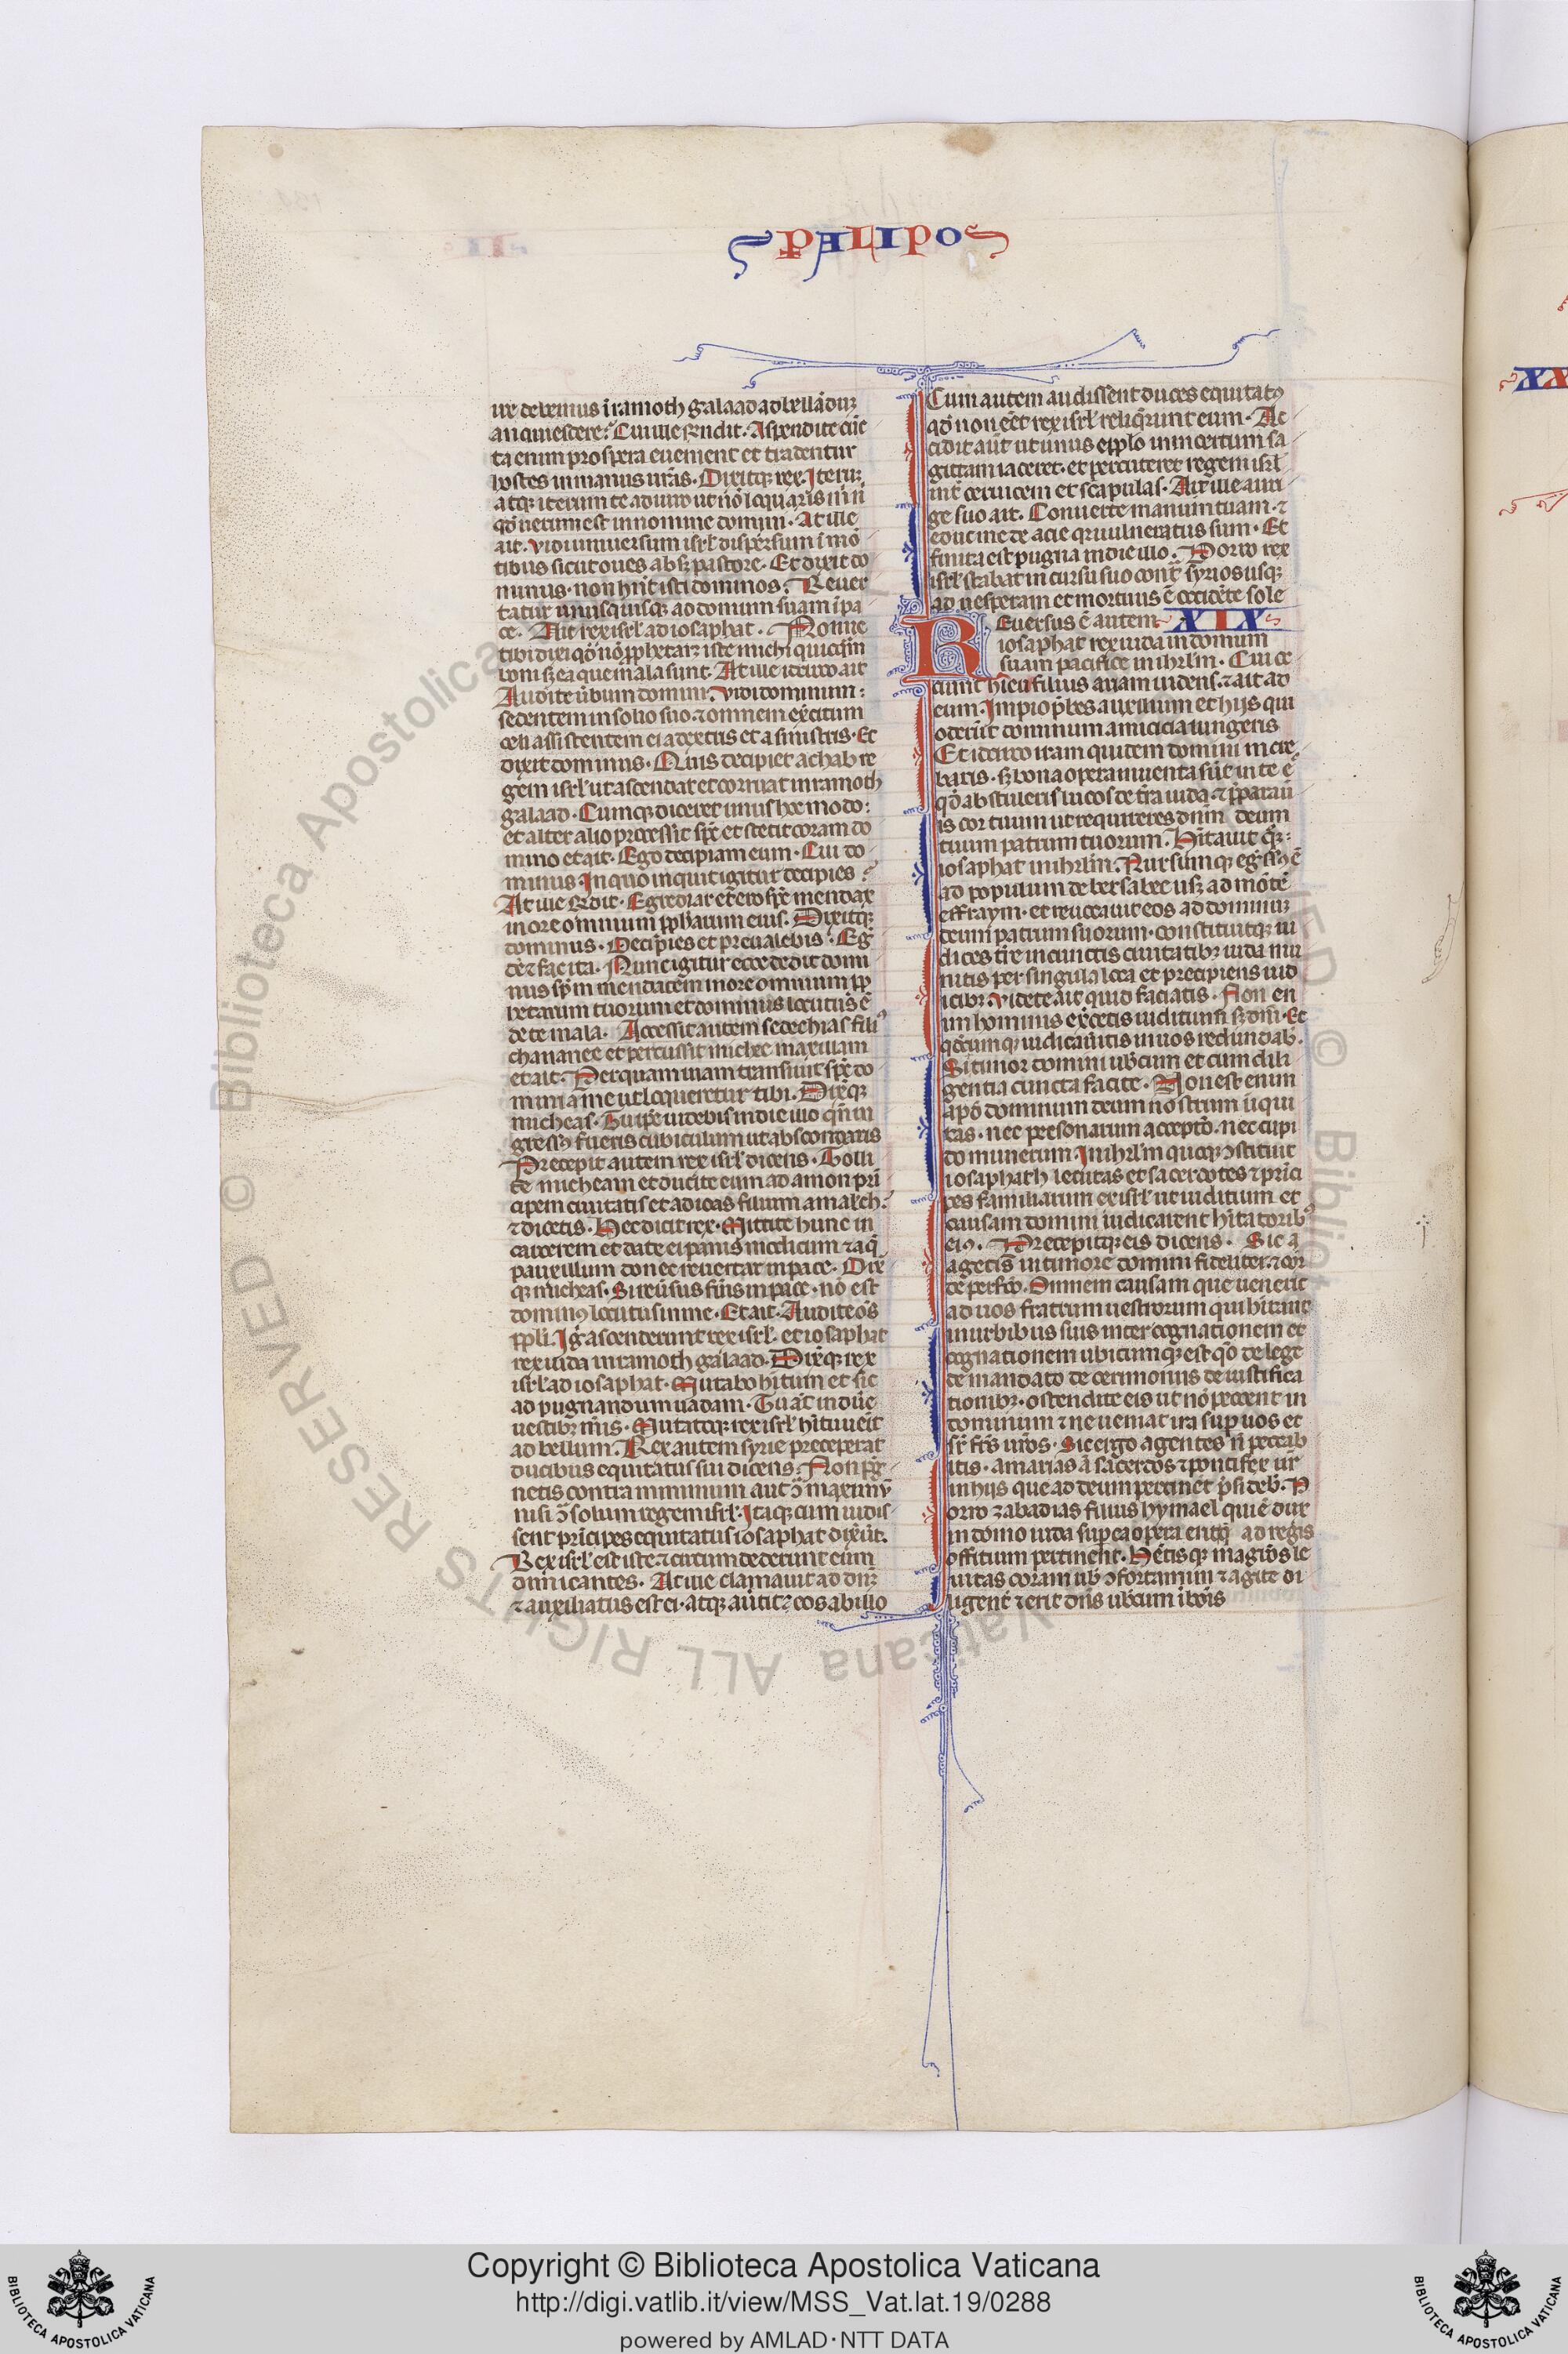 PALIPO
ire debemus i ramoth galaad ad bellādum
an quiescere. Cui ille rñdit. Ascendite cūc
ta enim prospera euenient et tradentur
hostes in manus uras. Dixitqʒ rex. Iterum
atqʒ iterum te adiuro ut nō loquaris m̄ n̄
qd̄ uerum est in nomine domini. At ille
ait. Vidi uniuersum isrl̄ dispersum ī mō
tibus sicut oues absqʒ pastore. Et dixit do
minus. non hn̄t isti dominos. Reuer
tatur unusquisqʒ ad domum suam ī pa
ce. Ait rex isrl̄ ad iosaphat. Nonne
tibi dixi qd̄ nō ꝓphetaret iste michi quicq̄m
boni sʒ ea que mala sunt. At ille idcirco ait
Audite ūbum domini. Vidi dominum
sedentem in solio suo ⁊ omnem exc̄itum
celi assistentem ei a dextris et a sinistris. Et
dixit dominus. Quis decipiet achab re
gem isrl̄ ut ascendat et corruat in ramoth
galaad. Cumqʒ diceret unus hoc modo:
et alter alio processit sp̄c et stetit coram do
mino et ait. Ego decipiam eum. Cui do
minus. In quo inquit igitur decipies?
At ille rñdit. Egrediar et ero sp̄c mendax
in ore omnium ꝓphetarum eius. Dixitqʒ
dominus. Decipies et preualebis. Eg̃
dere ⁊ fac ita. Nunc igitur ecce dedit domi
nus sp̄m mendacem in ore omnium ꝓp
hetarum tuorum et dominus locutus ē
de te mala. Accessit autem sedechias fili⁹
chananee et percussit michee maxillam
et ait. Per quam uiam transiuit sp̄c do
mini a me ut loqueretur tibi. Dixitqʒ
micheas. Tu ipse uidebis in die illo qn̄ in
gress⁹ fueris cubiculum ut abscondaris
Precepit autem rex isrl̄ dicens. Tolli
te micheam et ducite eum ad amon pri
cipem ciuitatis et ad ioas filium amalech.
⁊ dicetis. Hec dicit rex. Mittite hunc in
carcerem et date ei panis modicum ⁊ aq̄
pauxillum donec reuertar in pace. Dix̄
qʒ micheas. Si reūsus fueris in pace. nō est
domin⁹ locutus in me. Et ait. Audite oēs
ppli. Ig̃ ascenderunt rex isrl̄. et iosaphat
rex iuda in ramoth galaad. Dixitqʒ rex
isrl̄ ad iosaphat. Mutabo hītum et sic
ad pugnandum uadam. Tu aūt induere
uestibʒ tuis. Mutatoqʒ rex isrl̄ hītu uēit
ad bellum. Rex autem syrie preceperat
ducibus equitatus sui dicens. Non pug
netis contra minimum aut ꝯ maximū
nisi ꝯ solum regem isrl̄. Itaqʒ cum uidis
sent prīcipes equitatus iosaphat dixer̄ūt.
Rex isrl̄ est iste ⁊ circumdederunt eum
dimicantes. At ille clamauit ad dn̄m
⁊ auxiliatus est ei. atqʒ auertit eos ab illo
Cum autem audissent duces equitat⁹
qd̄ non eēt rex isrl̄ reliq̄runt eum. Ac
cidit aūt ut unus e pplo in incertum sa
gittam iaceret. et percuteret regem isrl̄
int̄ ceruicem et scapulas. At ille auri
ge suo ait. Conuerte manum tuam. ⁊
educ me de acie qr uulneratus sum. Et
finita est pugna in die illo. Porro rex
isrl̄ stabat in curru suo cont̄ syrios usqʒ
ad uesperam et mortuus ē occidēte sole
Reuersus ē autem XIX
iosaphat rex iuda in domum
suam pacifice in ihrlm̄. Cui oc
currit hieu filius anani uidens. ⁊ ait ad
eum. Impio p̄bes auxilium et hijs qui
oderūt dominum amicicia iungeris
Et idcirco iram quidem domini mere
baris. sʒ bona opera inuenta sūt in te e
qd̄ abstuleris lucos de t̄ra iuda ⁊ p̄paraū
is cor tuum ut requireres dn̄m deum
tuum patrum tuorum. Hītauit q̄ʒ:
iosaphat in ihrlm̄. Rursumqʒ egress⁹ ē
ad populum de bersabee usqʒ ad mōtē
effraym. et reuocauit eos ad dominum
deum patrum suorum. constituitqʒ iu
dices t̄re in cunctis ciuitatibʒ iuda mu
nitis per singula loca et precipiens iud
icibʒ. Videte ait quid faciatis. Non en
im hominis exercetis iuditium sʒ dn̄i. Et
qdcumqʒ iudicaueritis in uos redundab.
Sit timor domini uobiscum et cum dili
gentia cuncta facite. Non est enim
apd̄ dominum deum nostrum iniqui
tas. nec personarum acceptio. nec cupi
do munerum. In ihrlm̄ quoqʒ ꝯstituit
iosaphath leuitas et sacerdotes ⁊ princi
pes familiarum ex isrl̄ ut iuditium et
causam domini iudicarent hītatoribʒ
ei⁹. Precepitqʒ eis dicens. Sic a
agetis in timore domini fideliter ⁊ cor
de perfc̄o. Omnem causam que uenerit
ad uos fratrum uestrorum qui hītant
in urbibus suis inter cognationem et
cognationem ubicumqʒ est qō de lege
de mandato de cerimoniis de iustifica
tionibʒ. ostendite eis ut nō peccent in
dominum ⁊ ne ueniat ira sup uos et
sr̄ frēs ur̄os. Sic ergo agentes n̄ peccab
itis. amarias ā sacerdos ⁊ pontifex ur̄
in hijs que ad deum pertinēt p̄sidebit. P
orro zabadias filius hymael qui ē dux
in domo iuda sup ea opera erit q̄ ad regis
offitium pertinent. Hētisqʒ magr̄os le
uitas coram uob ꝯfortamini ⁊ agite di
ligenter ⁊ erit dn̄s uobcum ī bōis
XX
Copyright © Biblioteca Apostolica Vaticana
http://digi.vatlib.it/view/MSS_Vat.lat.19/0288
powered by AMLAD·NTT DATA
BIBLIOTECA APOSTOLICA VATICANA
BIBLIOTECA APOSTOLICA VATICANA